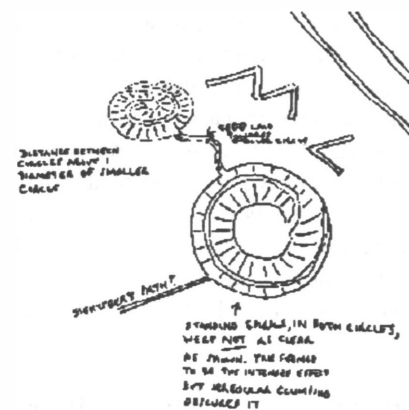 LAID
DISTANCE BETWEEN
CIRCLES ABOUT 1
DIAMETER OF SMALLER
CIRCLE
PATH?
STANDING SPIRALS, IN BOTH CIRCLES,
WERE NOT AS CLEAR
AS SHOWN. THE
TO BE THE INTENDED EFFECT
BUT IRREGULAR CLUMPING
OBSCURES IT